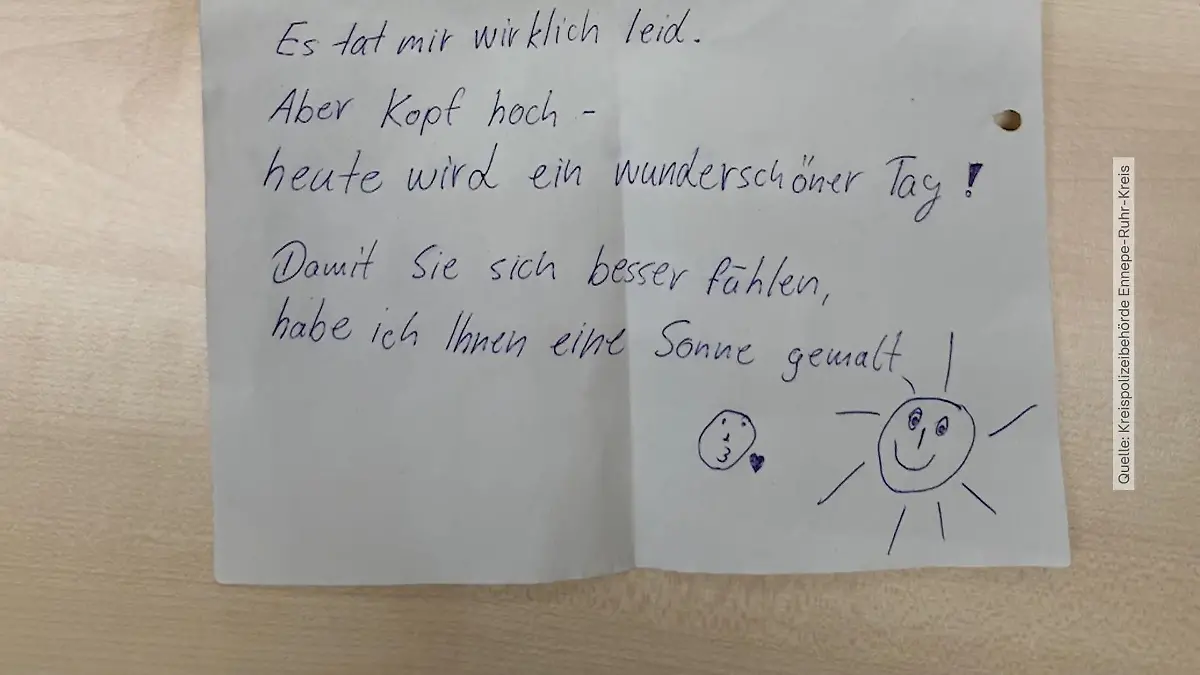 Es tat mir wirklich leid.
Aber Kopf hoch -
heute wird ein wunderschöner Tag!
Damit Sie sich besser fühlen,
habe ich Ihnen eine Sonne gemalt
Quelle: Kreispolizeibehörde Ennepe-Ruhr-Kreis